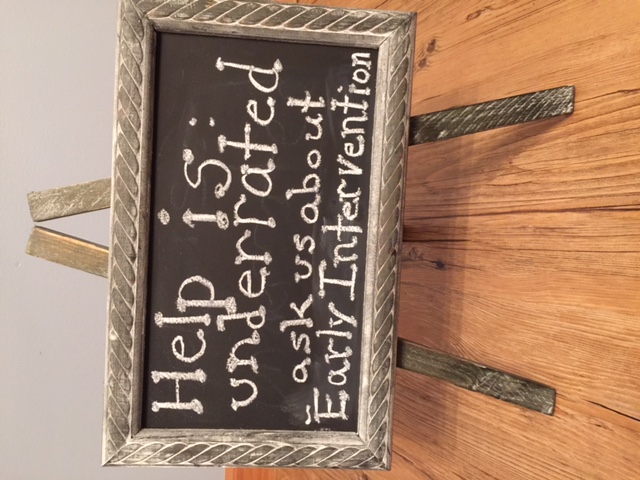 Help is:
underrated
ask us about
Early Intervention